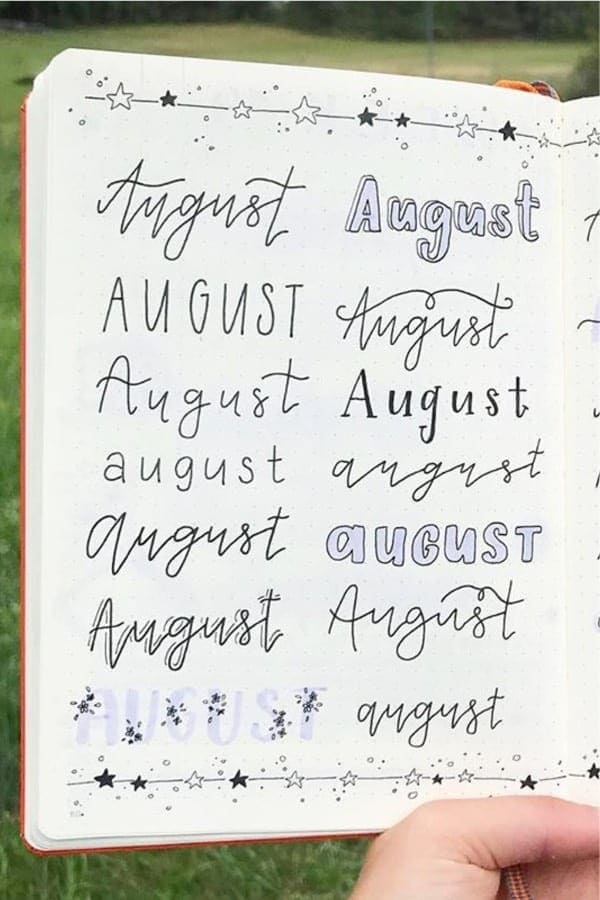 August August
AUGUST August
August August
august august
august auGusT
August August
AUGUST august